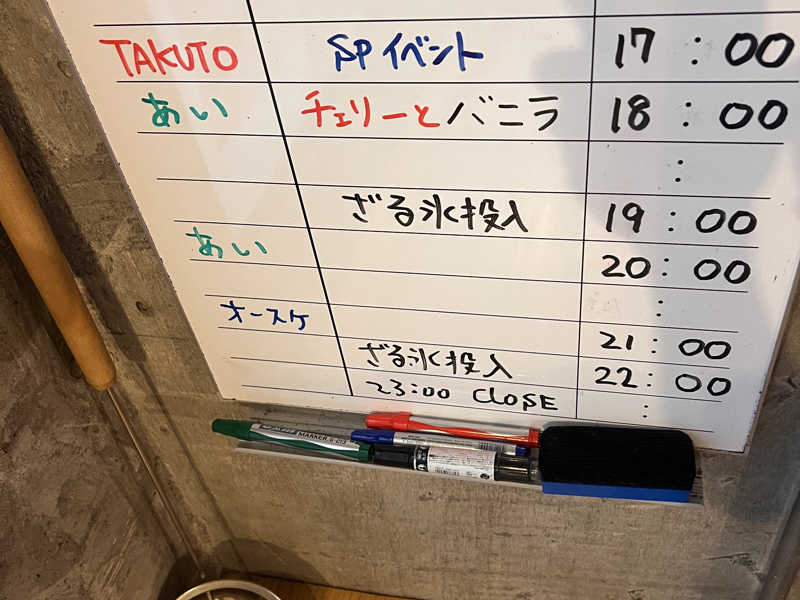 TAKUTO SPイベント 17:00
あい チェリーとバニラ 18:00
:
ざる氷投入 19:00
あい 20:00
:
オースケ 21:00
ざる氷投入 22:00
23:00 CLOSE :
MARKER